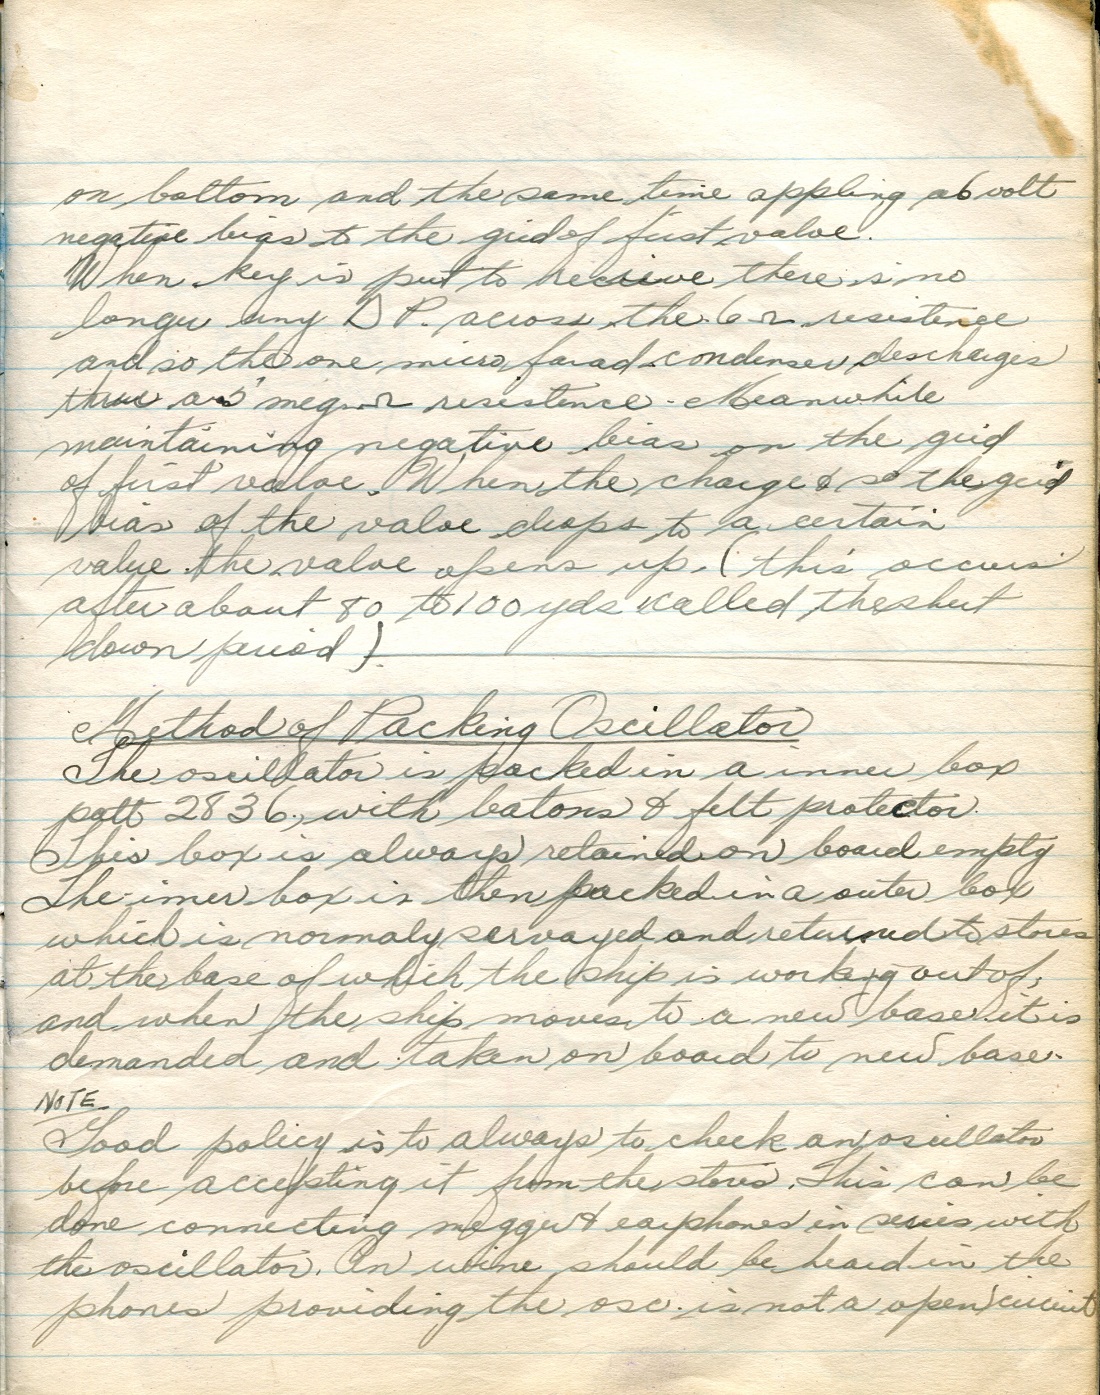 on bottom and the same time appling a 6 volt
negative bias to the grid of first valve.
When key is put to recieve there is no
longer any D P. across the 6 Ω resistence
and so the one micro farad condenser descharges
thru a .5 meg Ω resistence. Meanwhile
maintaining negative bias on the grid
of first valve. When the charge & so the grid
bias of the valve drops to a certain
value the valve opens up. (this occurs
after about 80 to 100 yds called the shut
down period)
Method of Packing Oscillator
The oscillator is packed in a inner box
patt 2836, with batons & felt protector.
This box is always retained on board empty
The inner box is then packed in a outer box
which is normaly servayed and returned to stores
at the base of which the ship is working out of,
and when the ship moves to a new base it is
demanded and taken on board to new base.
NOTE
Good policy is to always to check an oscillator
before accepting it from the stores. This can be
done connecting megger & earphones in series with
the oscillator. An wine should be heard in the
phones providing the osc. is not a open circuit